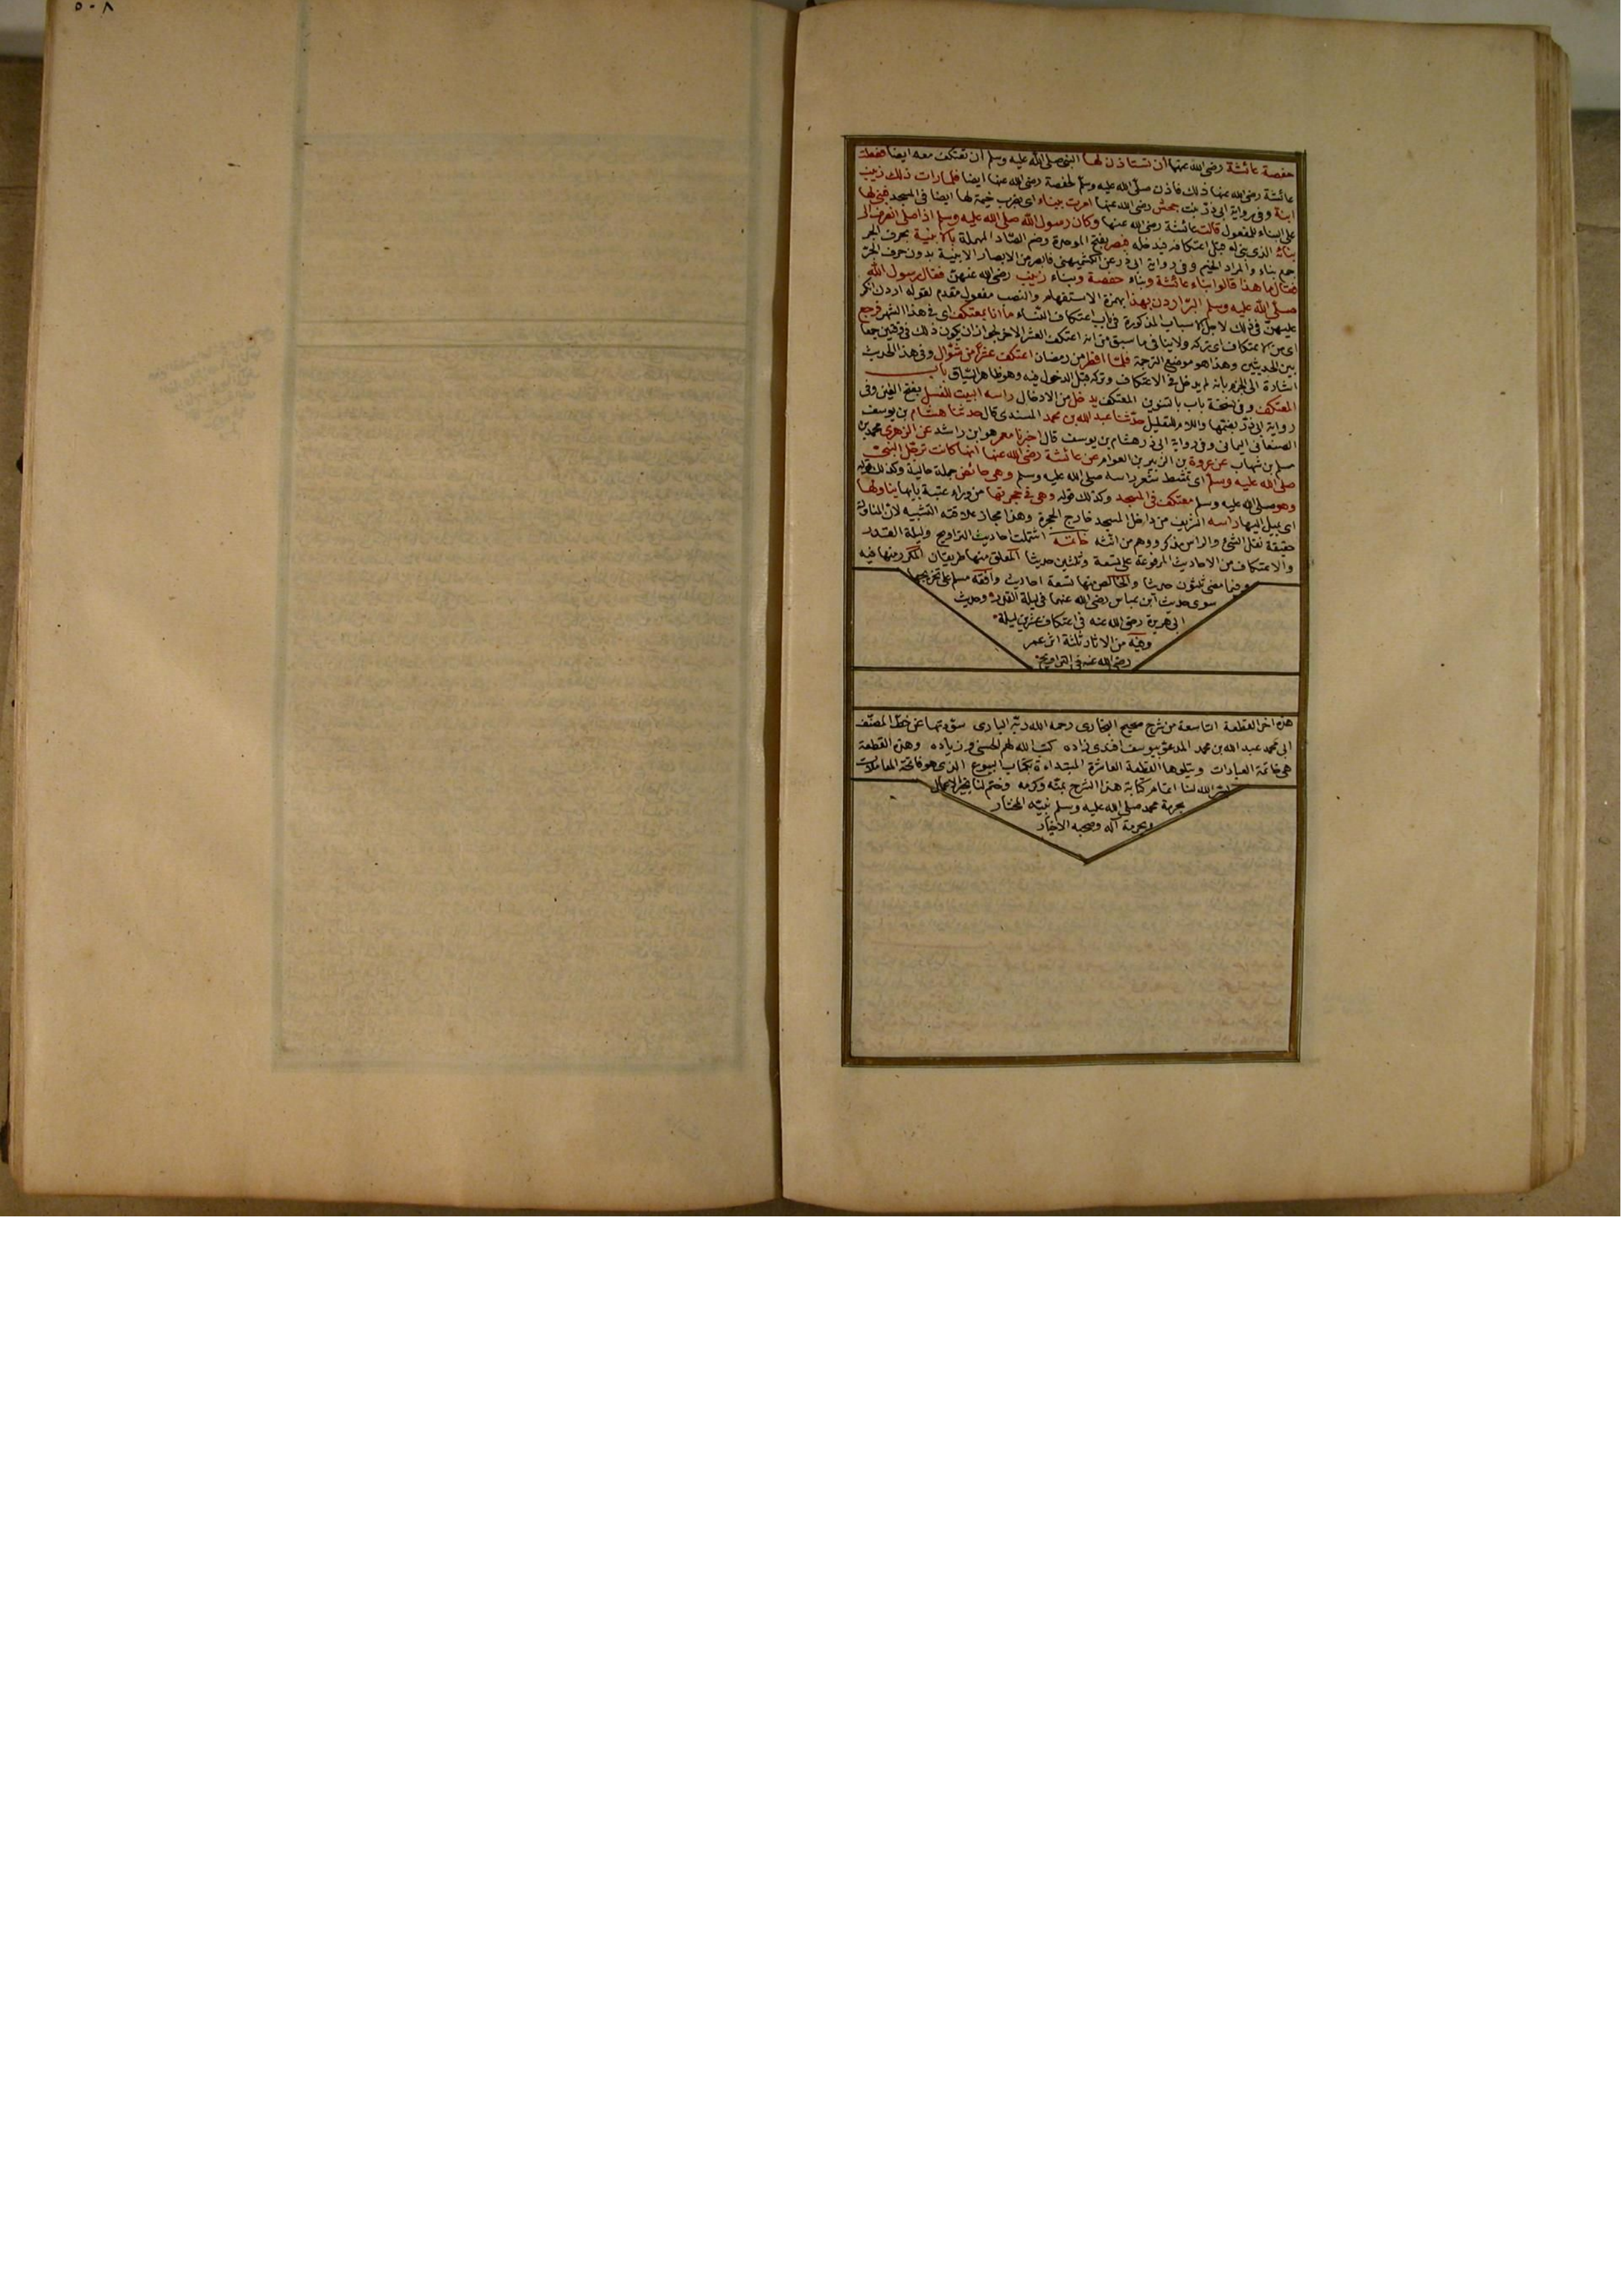 ٥٠٨
حفصة عائشة رضى الله عنها ان تستاذن لها النبى صلى الله عليه وسلم ان تعتكف معه ايضا ففعلت
عائشة رضى الله عنها ذلك فاذن صلى الله عليه وسلم لحفصة رضى الله عنها ايضا فلما رات ذلك زينب
ابنة وفى رواية ابى ذر بنت جحش رضى الله عنها امرت ببناء اى بضرب خيمة لها ايضا فى المسجد فبنى لها
على البناء للمفعول قالت عائشة رضى الله عنها وكان رسول الله صلى الله عليه وسلم اذا صلى انصرف الى
بنائه الذى بنى له قبل اعتكافه فيدخله فبصر بفتح الموحدة وضم الصاد المهملة بالابنية بحرف الجر
جمع بناء والمراد الخيم وفى رواية ابى ذر عن الكشميهنى فابصر من الابصار الابنية بدون حرف الجر
فقال ما هذا قالوا بناء عائشة وبناء حفصة وبناء زينب رضى الله عنهن فقال رسول الله
صلى الله عليه وسلم البر اردن بهذا بهمزة الاستفهام والنصب مفعول مقدم لقوله اردن انكر
عليهن فى ذلك لاجل الاسباب المذكورة فى باب اعتكاف النساء ما انا بمعتكف اى فى هذا الشهر فرجع
اى من الاعتكاف اى تركه ولا ينافى ما سبق من انه اعتكف العشر الاخر لجواز ان يكون ذلك فى وقتين جمعا
بين الحديثين وهذا هو موضع الترجمة فلما افطر من رمضان اعتكف عشرا من شوال وفى هذا الحديث
اشارة الى الجزم بانه لم يدخل فى الاعتكاف وتركه قبل الدخول فيه وهو ظاهر السياق باب
المعتكف وفى نسخة باب بالتنوين المعتكف يدخل من الادخال راسه البيت للغسل بفتح الغين وفى
رواية ابى ذر بضمها واللام للتعليل حدثنا عبد الله بن محمد المسندى قال حدثنا هشام بن يوسف
الصنعانى اليمانى وفى رواية ابى ذر هشام بن يوسف قال اخبرنا معمر هو ابن راشد عن الزهرى محمد بن
مسلم بن شهاب عن عروة بن الزبير بن العوام عن عائشة رضى الله عنها انها كانت ترجل النبى
صلى الله عليه وسلم اى تمشط شعر راسه صلى الله عليه وسلم وهى حائض جملة حالية وكذلك قوله
وهو صلى الله عليه وسلم معتكف فى المسجد وكذلك قوله وهى فى حجرتها من وراء عتبة بابها يناولها
اى يميل اليها راسه الشريف من داخل المسجد خارج الحجرة وهذا مجاز علاقته التشبيه لان المناولة
حقيقة نقل الشئ والراس مذكر ووهم من انثه خاتمة اشتملت احاديث التراويح وليلة القدر
والاعتكاف من الاحاديث المرفوعة على تسعة وثلثين حديثا المعلق منها طريقان المكرر منها فيه
وفيما مضى ثلثون حديثا والخالص منها تسعة احاديث وافقه مسلم على تخريجها
سوى حديث ابن عباس رضى الله عنهما فى ليلة القدر وحديث
ابى هريرة رضى الله عنه فى اعتكاف عشرين ليلة
وفيه من الاثار ثلثة اثر عمر
رضى الله عنه فى التراويح
هذه اخر القطعة التاسعة من شرح صحيح البخارى رحمه الله ربه البارى سودتها عن خط المصنف
ابى محمد عبد الله بن محمد المدعو بيوسف افندى زاده كتب الله لهم الحسنى وزياده وهذه القطعة
هى خاتمة العبادات ويتلوها القطعة العاشرة المبتداءة بكتاب البيوع الذى هو فاتحة المعاملات
يسر الله لنا اتمام كتابة هذا الشرح بمنه وكرمه وختم لنا بخير الاعمال
بحرمة محمد صلى الله عليه وسلم نبيه المختار
وبحرمة آله وصحبه الاخيار